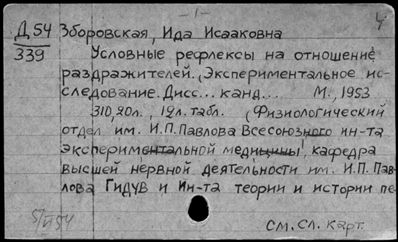 - 1 -
4
Д 54 Зборовская, Ида Исааковна
339 Условные рефлексы на отношение
раздражителей. (Экспериментальное ис-
следование. Дисс... канд... М., 1953
310, 20л., 12л. табл. (Физиологический
отдел им. И.П. Павлова Всесоюзного ин-та
экспериментальной медицины, кафедра
высшей нервной деятельности им. И.П. Пав-
лова ГИДУВ и Ин-та теории и истории пе-
См. сл. карт.